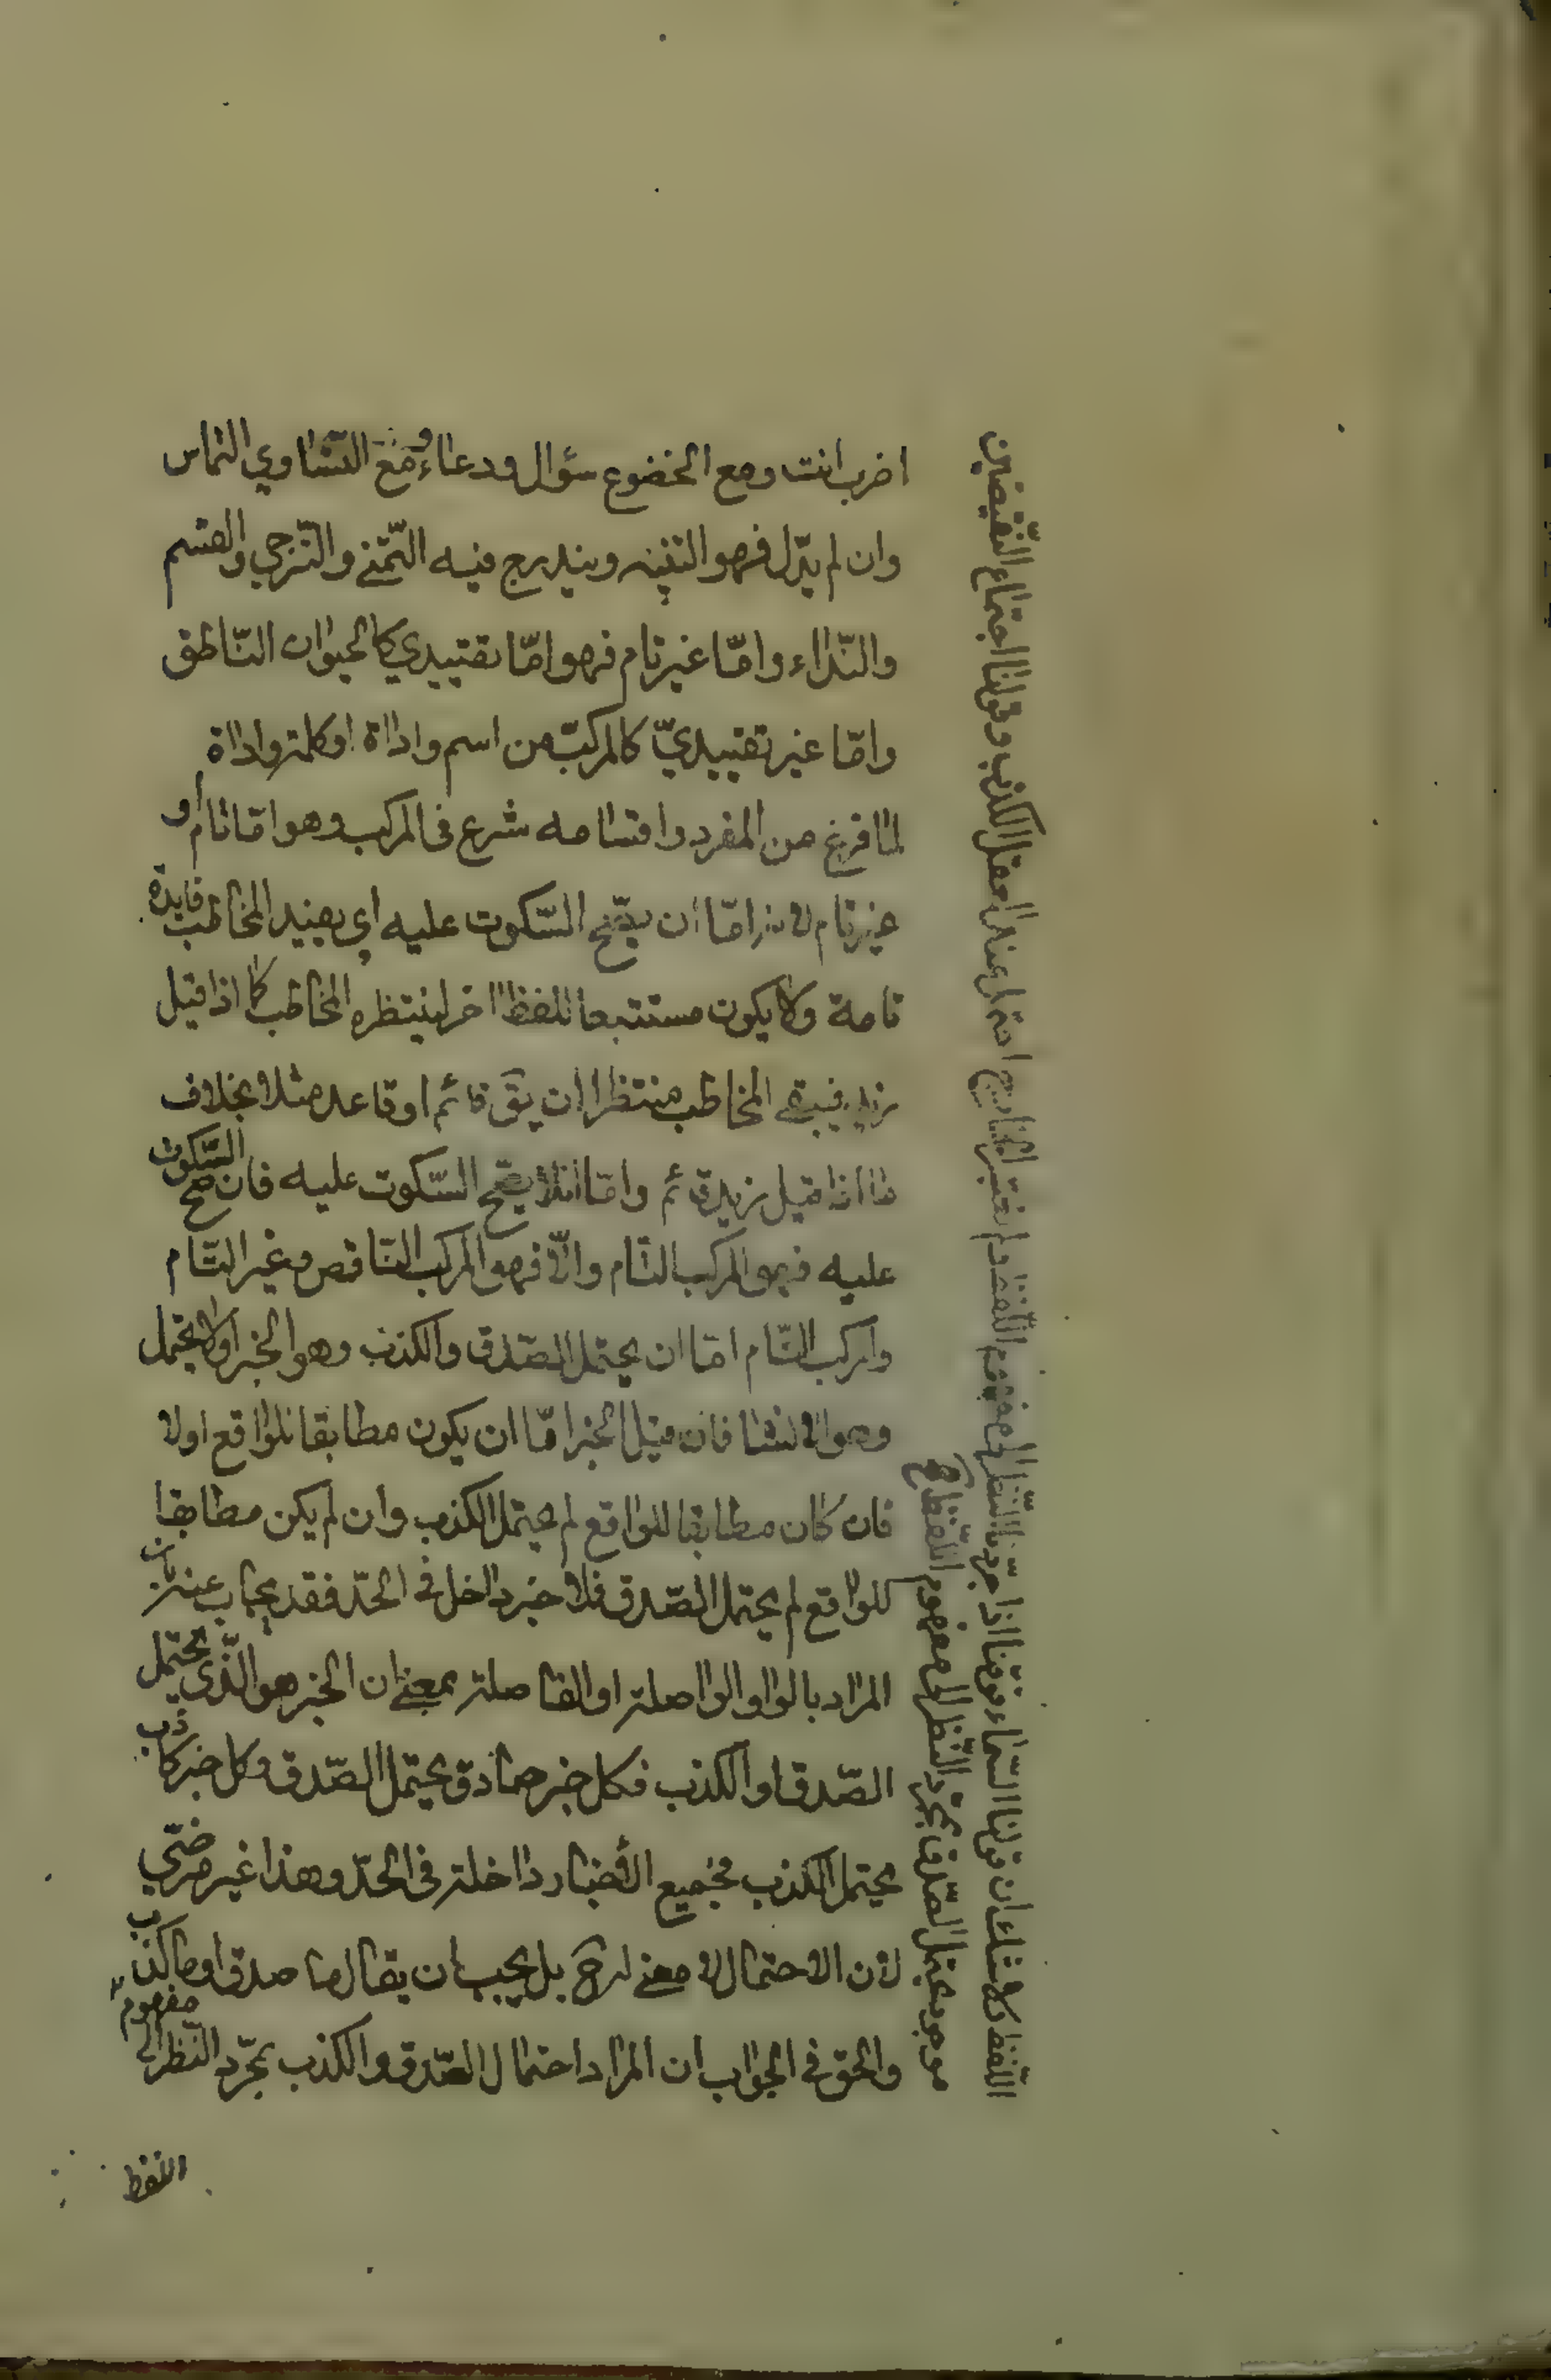 اضرب انت ومع الخضوع سؤال ودعاء ومع التّساوي التماس
وان لم يدّل فهو التنبيه ويندرج فيه التّمنّي والتّرجي والقسم
والنّداء وامّا غير تام فهو امّا تقييدي كالحيوان النّاطق
وامّا غير تقييديّ كالمركّب من اسم واداة او كلمة واداة
لمّا فرغ من المفرد واقسامه شرع فى المركب وهو امّا تام أو
غير تام لانه امّا أن يصّح السّكوت عليه اي يفيد المخاطب فايدة
تامة ولا يكون مستتبعا للفظ اخر لينتظره المخاطب كما اذا قيل
زيد فيبقى المخاطب منتظرا ان يقٓ قائم او قاعد مثلا بخلاف
ما اذا قيل زيد قائم وامّا ان لا يصّح السّكوت عليه فان صح السّكوت
عليه فهو المركب التّام والّا فهو المركب النّاقص وغير التّام
والمركب التّام امّا ان يحتمل الصّدق والكذب وهو الخبر اولا يحتمل
وهو الانشا فان قيل الخبر امّا ان يكون مطابقا للواقع اولا
فان كان مطابقا للواقع لم يحتمل الكذب وان لم يكن مطابقا
للواقع لم يحتمل الصّدق فلا خبر داخل فى الحدّ فقد يجاب عنه بان
المراد بالواو الواصلة او الفاصلة بمعنى ان الخبر هو الّذى يحتمل
الصّدق او الكذب فكل خبر صادق يحتمل الصّدق وكل خبر كاذب
يحتمل الكذب فجميع الأخبار داخلة فى الحدّ وهذا غير مرضّي
لان الاحتمال لا معنى له ح بل يجب ان يقال ما صدق او ما كذب
والحق فى الجواب ان المراد احتمال الصّدق والكذب بمجّرد النّظر الى مفهوم
اللفظ
اللّفظ ولا شك ان قولنا السّماء فوقنا اذا جرّدنا النّظر الى مفهوم اللّفظ ولم نعتبر الخارج احتمل عند العقل الكذب وقولنا اجتماع النّقيضين
موجود يحتمل الصّدق بمجرّد النّظر الى مفهوم اللّفظ